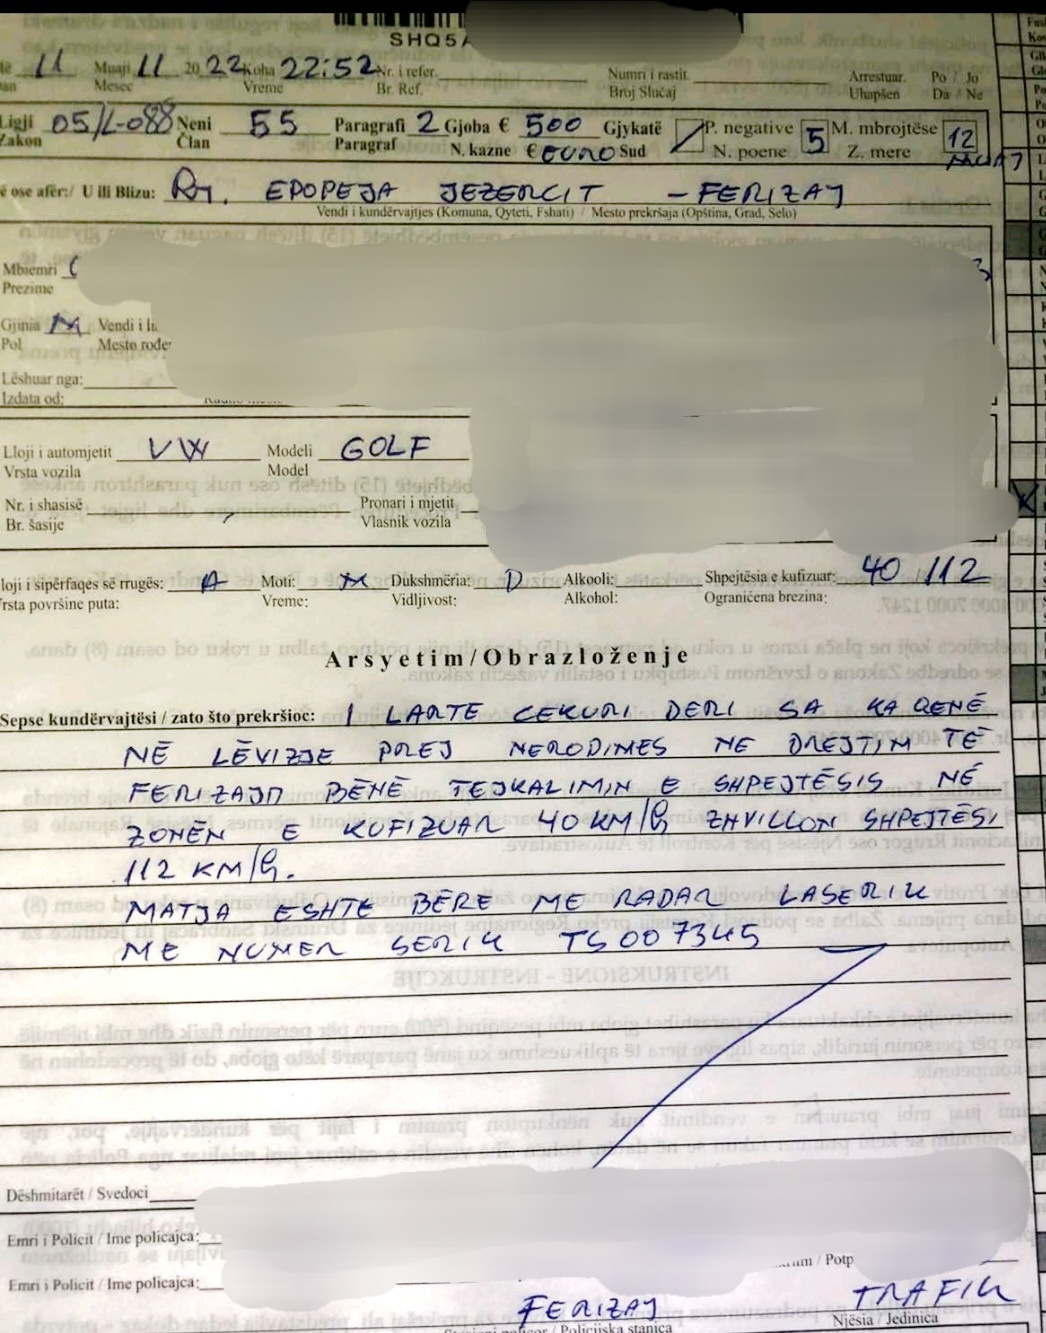 SHQ5A
11 Muaji 11 2022 Koha 22:52 Nr. i refer. Numri i rastit. Arrestuar. Po / Jo
Mesec Vreme Br. Ref. Broj Slučaj Uhapšen Da / Ne
Ligji 05/L-088 Neni 55 Paragrafi 2 Gjoba € 500 Gjykatë P. negative 5 M. mbrojtëse 12
Zakon Član Paragraf N. kazne € EURO Sud N. poene Z. mere MUAJ
ose afër:/ U ili Blizu: Rr. EPOPEJA JEZERCIT - FERIZAJ
Vendi i kundërvajtjes (Komuna, Qyteti, Fshati) / Mesto prekršaja (Opština, Grad, Selo)
Mbiemri
Prezime
Gjinia M Vendi i
Pol Mesto rođe
Lëshuar nga:
Izdata od:
Lloji i automjetit VW Modeli GOLF
Vrsta vozila Model
Nr. i shasisë Pronari i mjetit
Br. šasije Vlasnik vozila
loji i sipërfaqes së rrugës: A Moti: M Dukshmëria: D Alkooli: Shpejtësia e kufizuar: 40/112
rsta površine puta: Vreme: Vidljivost: Alkohol: Ograničena brezina:
Arsyetim/Obrazloženje
Sepse kundërvajtësi / zato što prekršioc: I LARTE CEKURI DERI SA KA QENË
NË LËVIZJE PREJ NERODIMES NE DREJTIM TË
FERIZAJT BËNË TEJKALIMIN E SHPEJTËSIS NË
ZONËN E KUFIZUAR 40 KM/h ZHVILLON SHPEJTËSI
112 KM/h.
MATJA ESHTE BËRE ME RADAR LASERIK
ME NUMER SERIK TS007345
Dëshmitarët / Svedoci
Emri i Policit / Ime policajca:
/ Potp
Emri i Policit / Ime policajca:
FERIZAJ TRAFIK
/ Policijska stanica Njësia / Jedinica